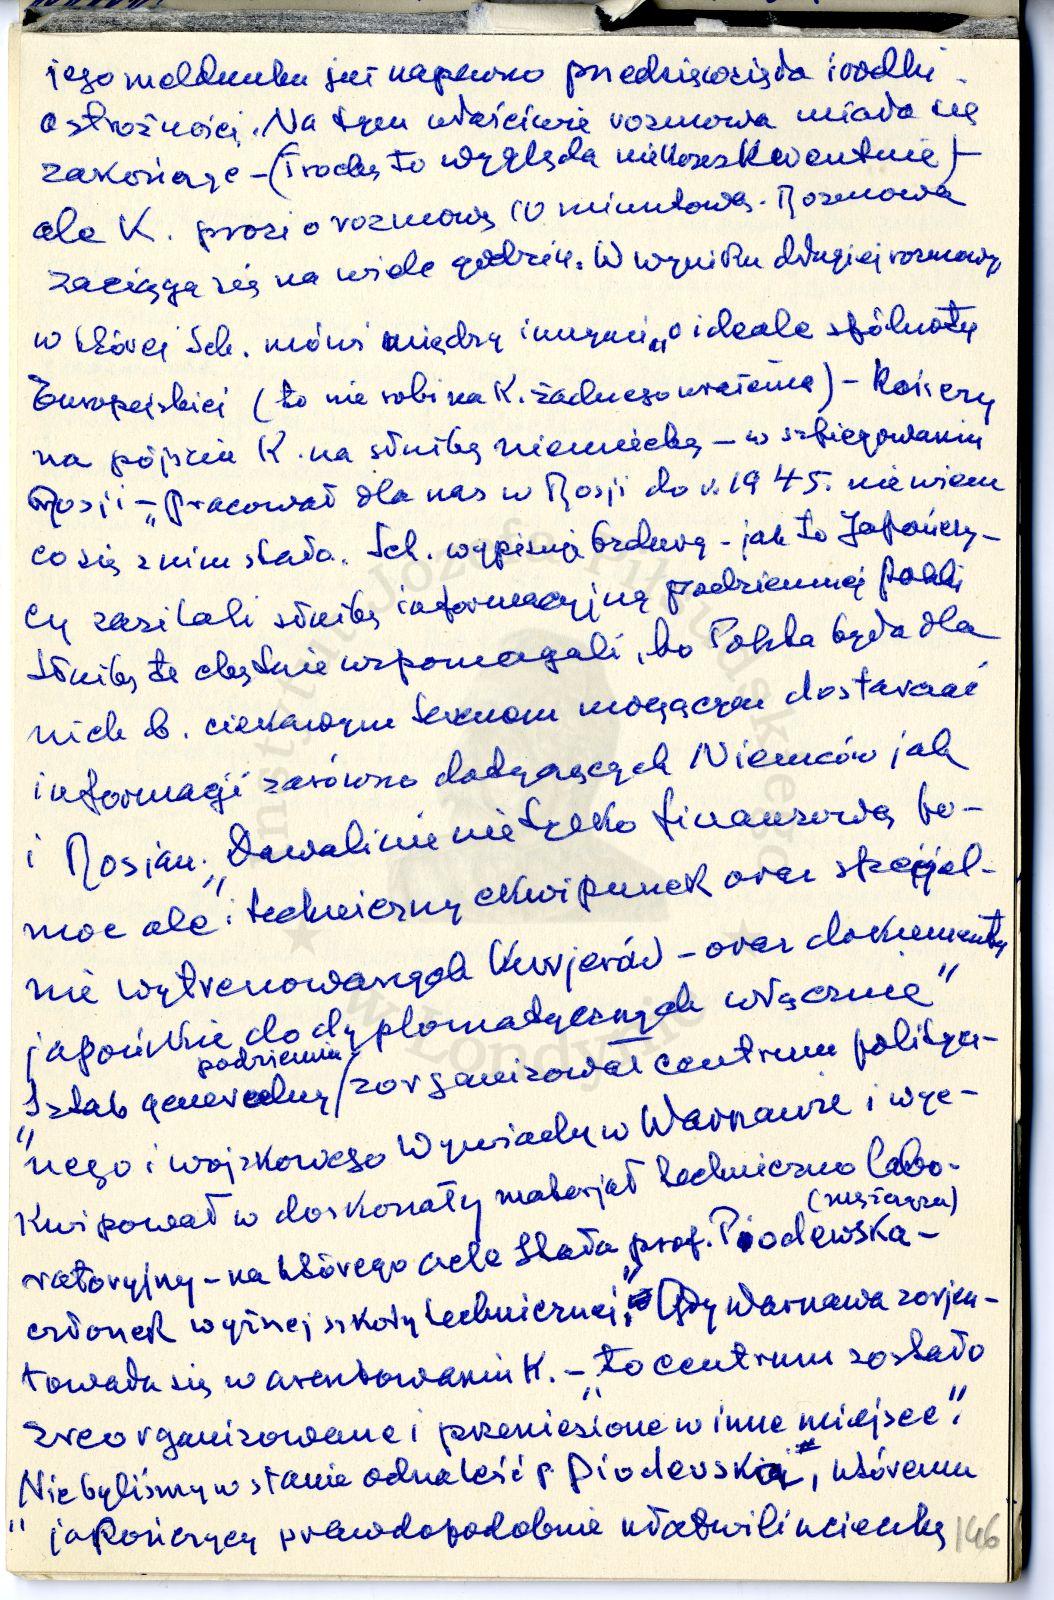 jego meldunku już napewno przedsięwzięła środki
ostrożności. Na tym właściwie rozmowa miała się
zakończyć – (Trochę to wygląda niekonsekwentnie) –
ale K. prosi o rozmowę 10 minutową. Rozmowa
zaciąga się na wiele godzin. W wyniku długiej rozmowy
w której Sch. mówi między innymi „o ideale spólnoty
Europejskiej (to nie robi na K. żadnego wrażenia) – kończy
na pójściu K. na służbę niemiecką – w szpiegowaniu
Rosji – „Pracował dla nas w Rosji do r. 1945. nie wiem
co się z nim stało. Sch. wypisuje brednie – jak to Japończy–
cy zasilali służbę informacyjną podziemnej Polski
służbę tę chętnie wspomagali, bo Polska była dla
nich b. ciekawym terenem mogącym dostarczać
informacji zarówno dotyczących Niemców jak
i Rosjan. „Dawali im nie tylko finansową po–
moc ale i techniczny ekwipunek oraz specjal–
nie wytrenowanych Kurjerów – oraz dokumenty
japońskie do dyplomatycznych włącznie"
podziemny
Sztab generalny / zorganizował centrum politycz–
"nego i wojskowego Wywiadu w Warszawie i wye–
kwipował w doskonały materjał techniczno labo–
(mężczyzna)
ratoryjny – na którego czele stała prof. Piodewska –
członek wyższej szkoły technicznej". Gdy Warszawa zorjen–
towała się w aresztowaniu K. – „to centrum zostało
zreorganizowane i przeniesione w inne miejsce".
Nie byliśmy w stanie odnaleść p. Piodevską", któremu
" japończycy prawdopodobnie ułatwili ucieczkę
146